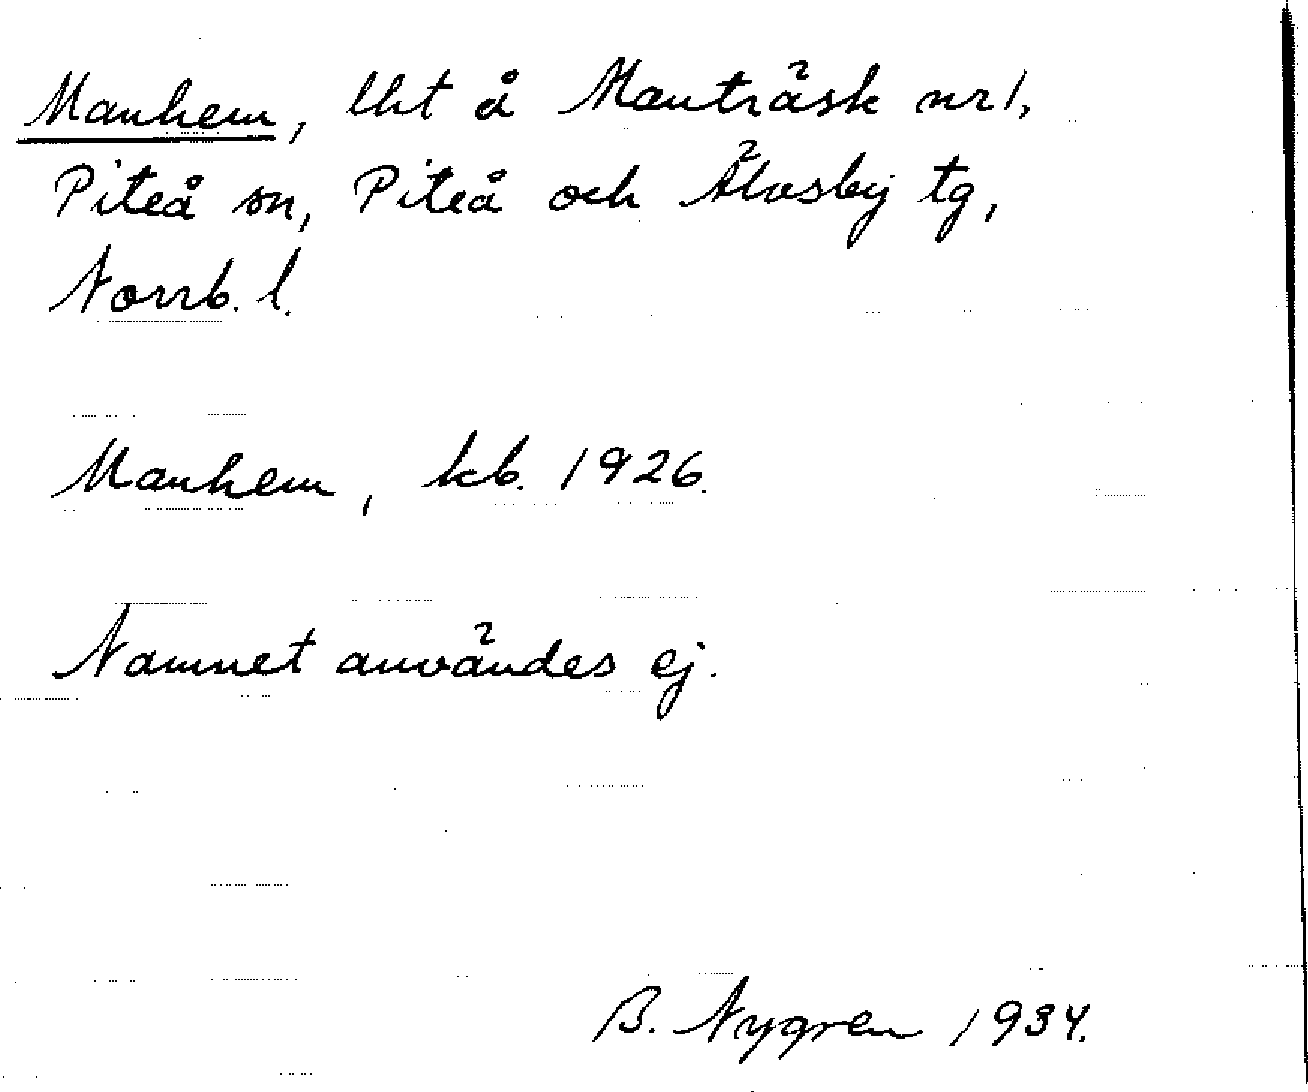 Manhem, lht å Manträsk nr 1,
Piteå sn, Piteå och Älvsby tg,
Norrb. l.
Manhem, kb. 1926.
Namnet användes ej.
B. Nygren 1934.